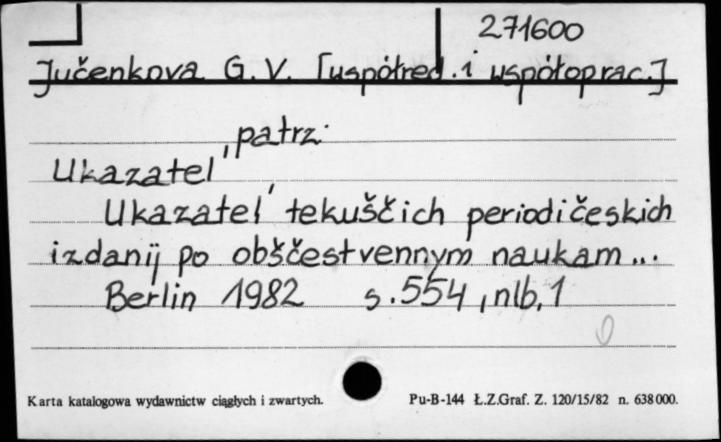 271600
Jučenkova G. V. [współred. i współoprac.]
patrz:
Ukazatel'
Ukazatel' tekuščich periodičeskich
izdanij po obščestvennym naukam ...
Berlin 1982 s. 554, nlb. 1
Karta katalogowa wydawnictw ciągłych i zwartych. Pu-B-144 Ł.Z.Graf. Z. 120/15/82 n. 638 000.